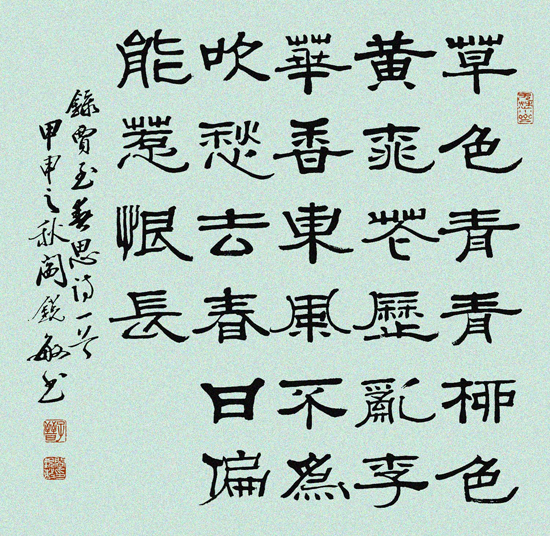 草色青青柳色
黄桃花歷亂李
華香東風不為
吹愁去春日偏
能惹恨長
録賈至春思诗一首
甲申之秋阎鋭敏书